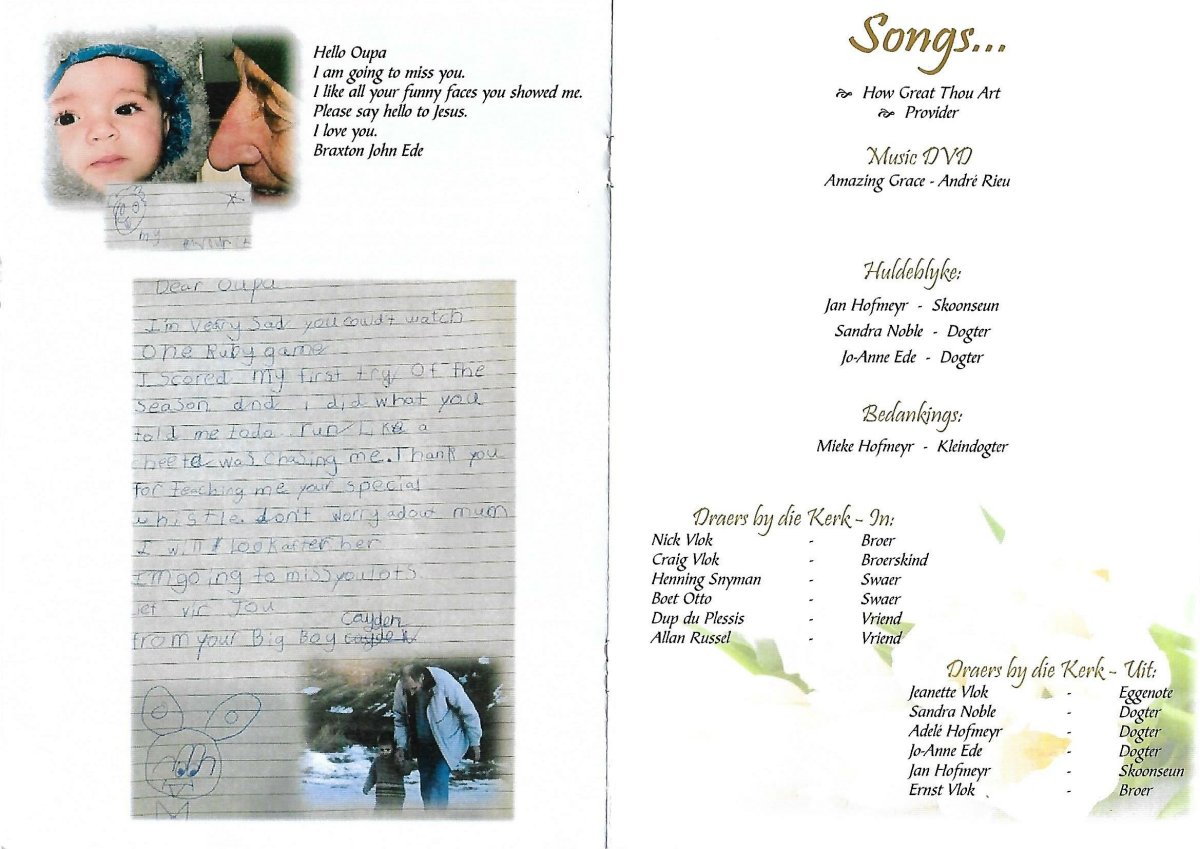 Hello Oupa
I am going to miss you.
I like all your funny faces you showed me.
Please say hello to Jesus.
I love you.
Braxton John Ede
my
Dear Oupa
I'm very sad you coudt watch
one Ruby game
I scored my first try Of the
season and i did what you
told me todo run Like a
cheeta was chasing me. Thank you
for teaching me your special
whistle. don't worry adout mum
I will look after her
I'm going to miss you lots.
lief vir Jou
Cayden
from your Big Boy
Songs...
How Great Thou Art
Provider
Music DVD
Amazing Grace - André Rieu
Huldeblyke:
Jan Hofmeyr - Skoonseun
Sandra Noble - Dogter
Jo-Anne Ede - Dogter
Bedankings:
Mieke Hofmeyr - Kleindogter
Draers by die Kerk - In:
Nick Vlok - Broer
Craig Vlok - Broerskind
Henning Snyman - Swaer
Boet Otto - Swaer
Dup du Plessis - Vriend
Allan Russel - Vriend
Draers by die Kerk - Uit:
Jeanette Vlok - Eggenote
Sandra Noble - Dogter
Adelé Hofmeyr - Dogter
Jo-Anne Ede - Dogter
Jan Hofmeyr - Skoonseun
Ernst Vlok - Broer